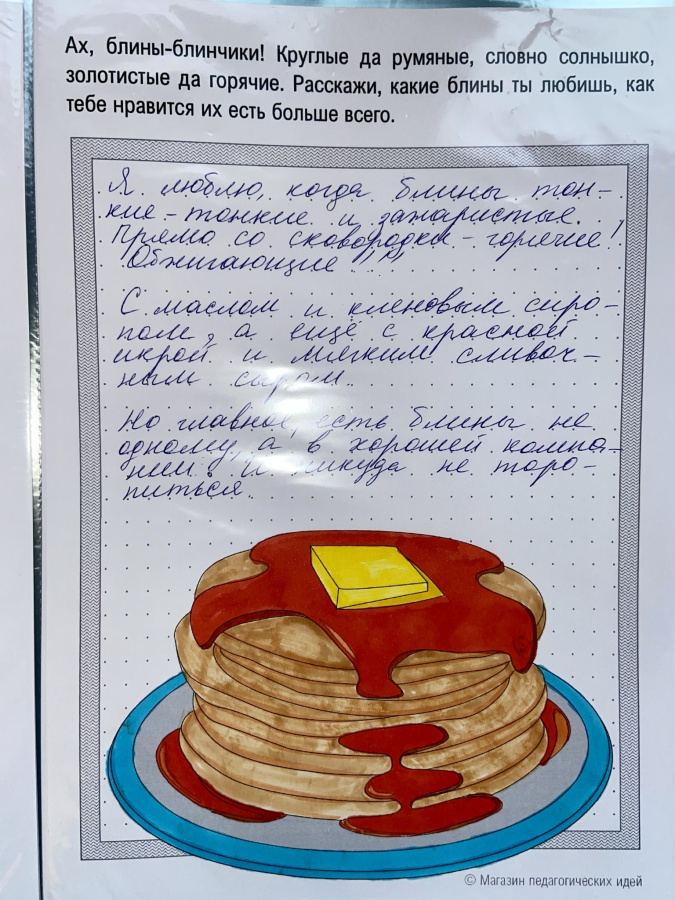 Ах, блины-блинчики! Круглые да румяные, словно солнышко,
золотистые да горячие. Расскажи, какие блины ты любишь, как
тебе нравится их есть больше всего.
Я люблю, когда блины тон-
кие-тонкие и зажаристые.
Прямо со сковородки - горячие!
Обжигающие!!!
С маслом и кленовым сиро-
пом, а ещё с красной
икрой и мягким сливоч-
ным сыром.
Но главное, есть блины не
одному, а в хорошей компа-
нии. И никуда не торо-
питься.
© Магазин педагогических идей